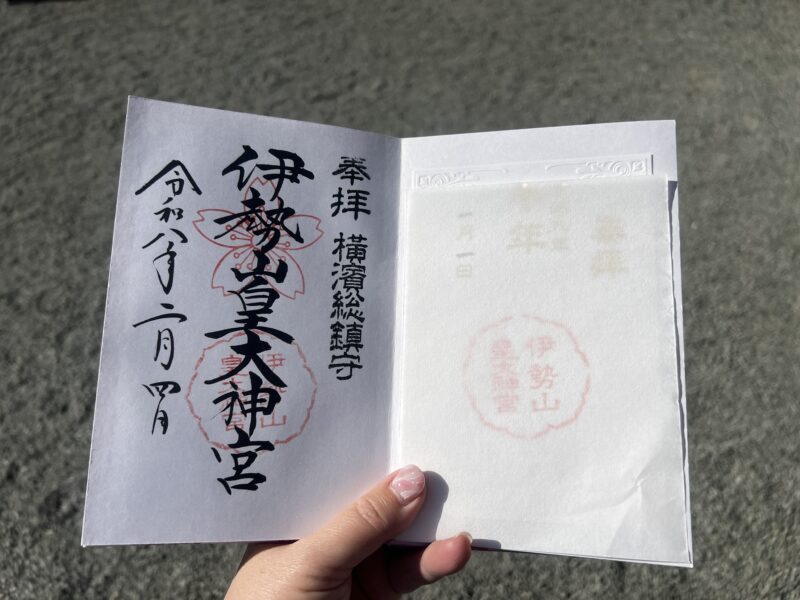 奉拝
一月一日
伊勢山
皇大神宮
奉拝 横濱総鎮守
伊勢山皇大神宮
令和八年二月四日